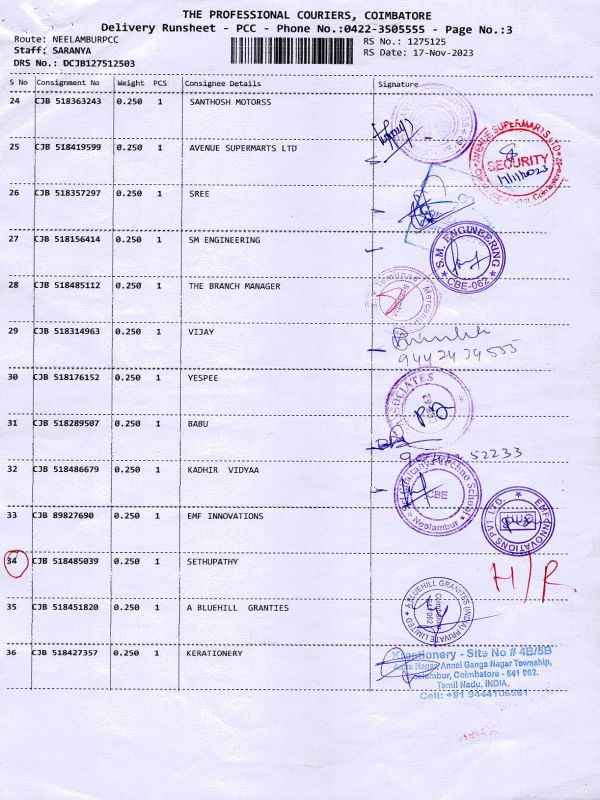 THE PROFESSIONAL COURIERS, COIMBATORE
Delivery Runsheet - PCC - Phone No.:0422-3505555 - Page No.:3
Route: NEELAMBURPCC
RS No.: 1275125
Staff: SARANYA
RS Date: 17-Nov-2023
DRS No.: DCJB127512503
S No Consignment No Weight PCS Consignee Details Signature
24 CJB 518363243 0.250 1 SANTHOSH MOTORSS
25 CJB 518419599 0.250 1 AVENUE SUPERMARTS LTD
AVENUE SUPERMARTS LTD
SECURITY
26 CJB 518357297 0.250 1 SREE
27 CJB 518156414 0.250 1 SM ENGINEERING
S.M. ENGINEERING
CBE-062
28 CJB 518485112 0.250 1 THE BRANCH MANAGER
29 CJB 518314963 0.250 1 VIJAY
30 CJB 518176152 0.250 1 YESPEE
ASSOCIATES
31 CJB 518289507 0.250 1 BABU
52233
32 CJB 518486679 0.250 1 KADHIR VIDYAA
Techno School
CBE
Neelambur
33 CJB 89827690 0.250 1 EMF INNOVATIONS
EMF INNOVATIONS PVT LTD.
34 CJB 518485039 0.250 1 SETHUPATHY
H/R.
35 CJB 518451820 0.250 1 A BLUEHILL GRANTIES
A BLUEHILL GRANITES (INDIA) PRIVATE LIMITED
36 CJB 518427357 0.250 1 KERATIONERY
- Site No # 4B/5B
Nagar, Annai Ganga Nagar Township,
Coimbatore - 641 062.
Tamil Nadu. INDIA.
Cell: +91